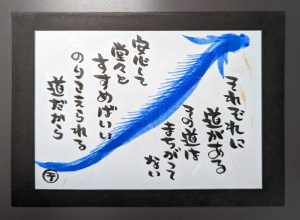 それぞれに
道がある
その道は
まちがって
ない
安心して
堂々と
すすめばいい
のりこえられる
道だから